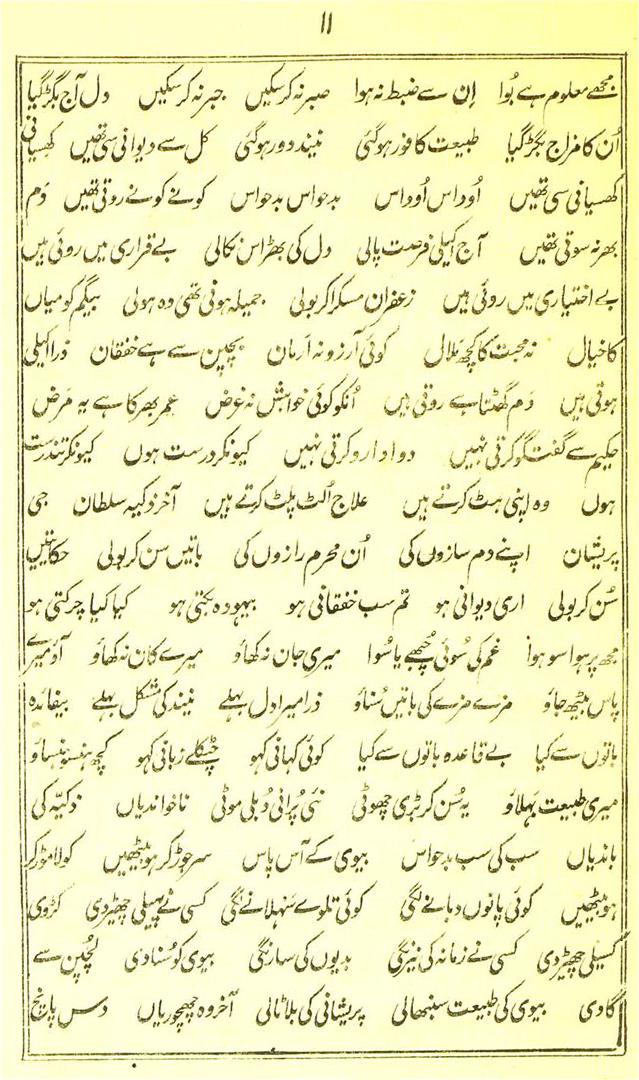 ۱۱
مجھے معلوم ہے بُوا اِن سے ضبط نہ ہوا صبر نہ کر سکیں جبر نہ کر سکیں دل آج بگڑ گیا
اُن کا مزاج بگڑ گیا طبیعت کافور ہو گئی نیند دور ہو گئی کل سے دیوانی سی تھیں کھسیانی
کھسیانی سی تھیں اُوداس اُوداس بدحواس بدحواس کونے کونے روتی تھیں دَم
بھر نہ سوتی تھیں آج اکیلی فرصت پالی دل کی بھڑاس نکالی بے قراری میں روئی ہیں
بے اختیاری میں روئی ہیں زعفران مسکرا کر بولی جمیلہ ہونی تھی وہ ہولی بیگم کو میاں
کا خیال نہ محبت کا کچھ ملال کوئی آرزو نہ ارمان بچپن سے ہے خفقان ذرا اکیلی
ہوتی ہیں دَم گھٹتا ہے روتی ہیں اُنکو کوئی خواہش نہ غرض عمر بھر کا ہے یہ مَرض
حکیم سے گفتگو کرتی نہیں دوا دارو کرتی نہیں کیونکر درست ہوں کیونکر تندرست
ہوں وہ اپنی ہٹ کرتے ہیں علاج اُلٹ پلٹ کرتے ہیں آخر ذکیہ سلطان جی
پریشان اپنے دم سازوں کی اُن محرم رازوں کی باتیں سن کر بولی حکایتیں
سُن کر بولی اری دیوانی ہو تم سب خفقانی ہو بیہودہ بکتی ہو کیا کیا چرکتی ہو
مجھ پر ہوا سو ہوا غم کی سُوئی چُبھے یا سُوا میری جان نہ کھاؤ میرے کان نہ کھاؤ آؤ میرے
پاس بیٹھ جاؤ مزے مزے کی باتیں سُناؤ ذرا میرا دل بہلے نیند کی شکل بہلے بیفائدہ
باتوں سے کیا بے قاعدہ باتوں سے کیا کوئی کہانی کہو چٹکلے زبانی کہو کچھ ہنسو ہنساؤ
میری طبیعت بہلاؤ یہ سُن کر بڑی چھوٹی نئی پُرانی دُبلی موٹی ناخواندیاں ذکیّہ کی
باندیاں سب کی سب بدحواس بیوی کے آس پاس سر جوڑ کر ہو بیٹھیں کولا موڑ کر
ہو بیٹھیں کوئی پانوں دبانے لگی کوئی تلوے سَہلانے لگی کسی نے پہیلی چھیڑ دی کڑوی
کسیلی چھیڑ دی کسی نے زمانہ کی نیرنگی بدیوں کی سارنگی بیوی کو سُنا دی لُچپن سے
گا دی بیوی کی طبیعت سنبھالی پریشانی کی بلا ٹالی آخر وہ چھچوریاں دس پانچ